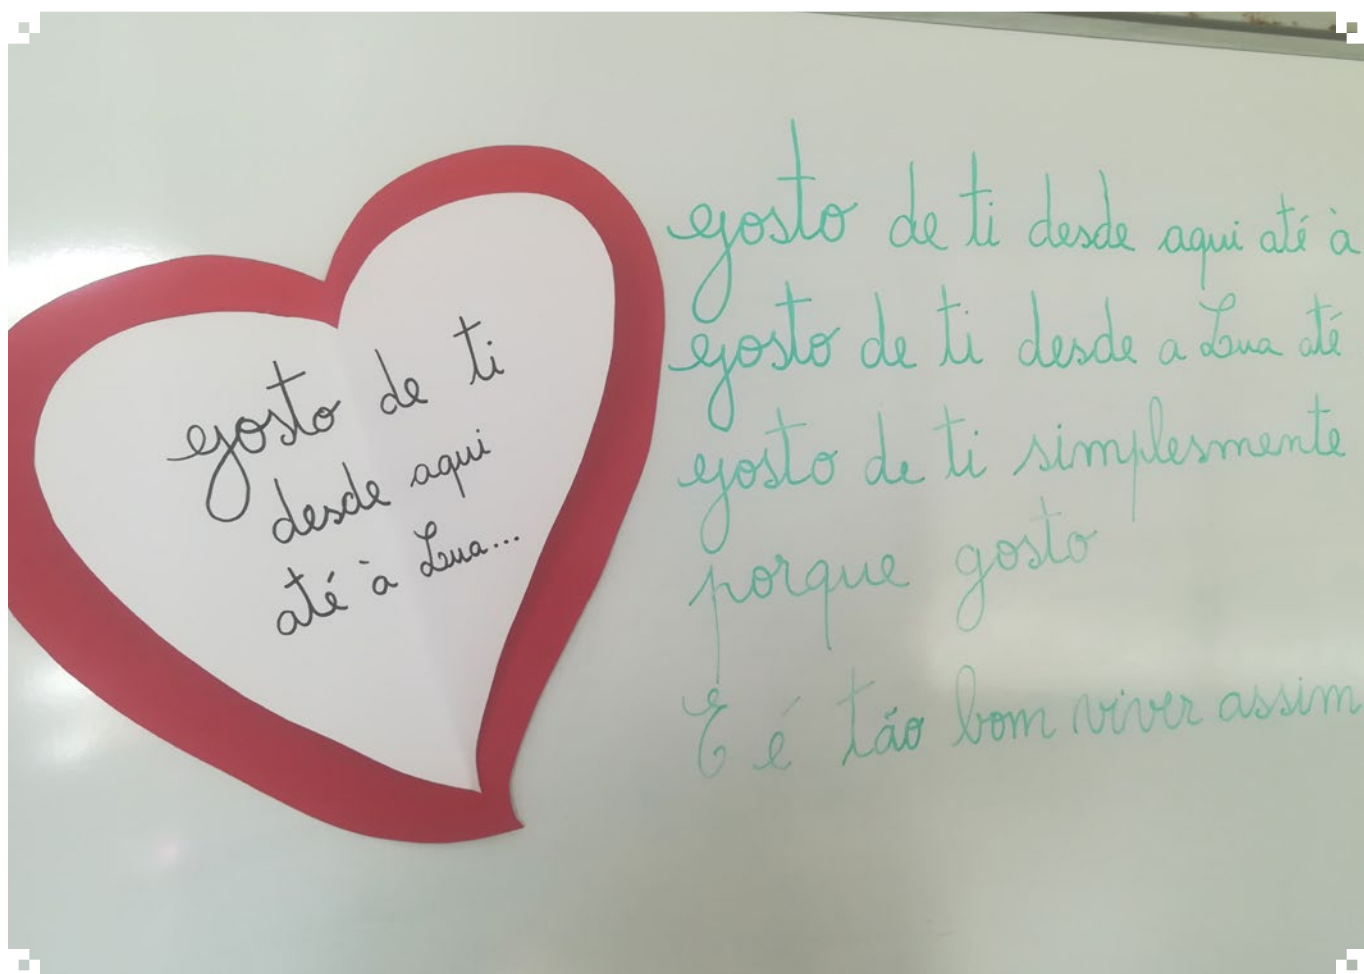 gosto de ti
desde aqui
até à Lua...
gosto de ti desde aqui até à
gosto de ti desde a Lua até
gosto de ti simplesmente
porque gosto
E é tão bom viver assim